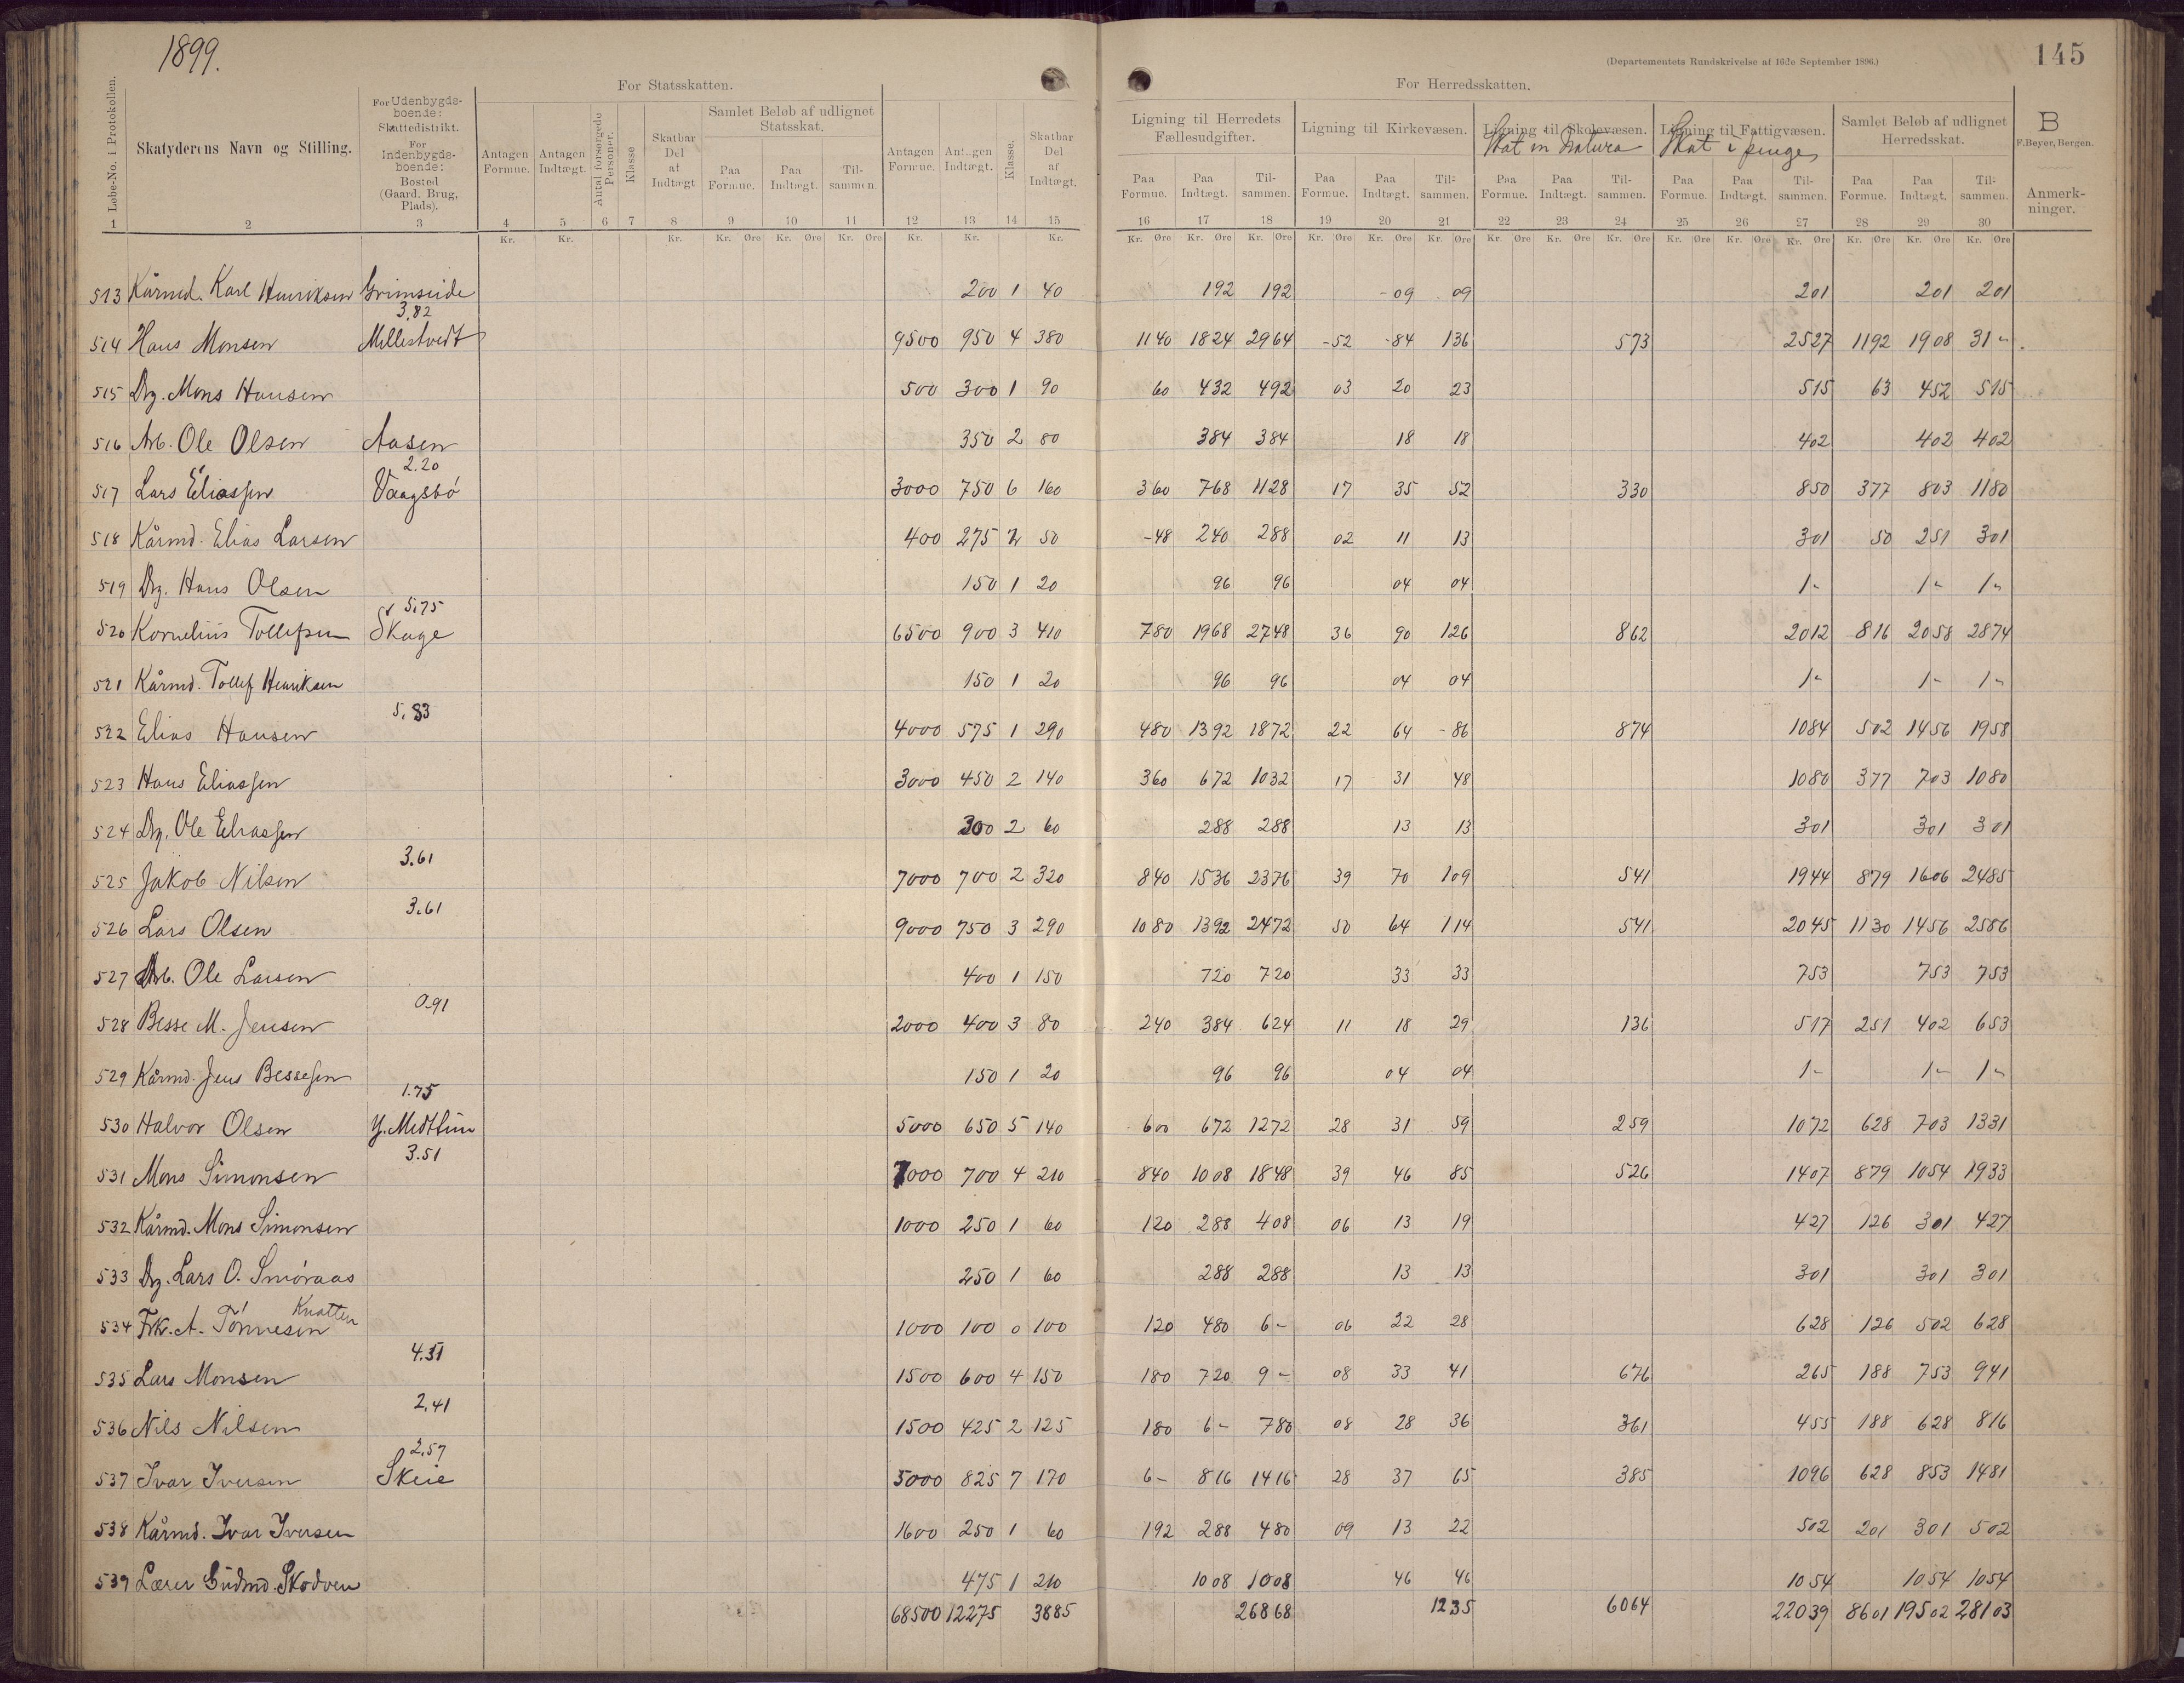 1899.
(Departementets Rundskrivelse af 16de September 1896.)
145
For Statsskatten.
For Herredsskatten.
Løbe-No. i Protokollen.
Skatyderens Navn og Stilling.
For Udenbygds-boende: Skattedistrikt. For Indenbygds-boende: Bosted (Gaard, Brug, Plads).
Antagen Formue.
Antagen Indtægt.
Antal forsørgede Personer.
Klasse
Skatbar Del af Indtægt
Samlet Beløb af udlignet Statsskat.
Paa Formue.
Paa Indtægt.
Tilsammen.
Antagen Formue.
Antagen Indtægt.
Klasse.
Skatbar Del af Indtægt.
Ligning til Herredets Fællesudgifter.
Ligning til Kirkevæsen.
Ligning til Skolevæsen.
Skat in Natura
Ligning til Fattigvæsen.
Skat i penge
Samlet Beløb af udlignet Herredsskat.
Paa Formue. Paa Indtægt. Til-sammen. Paa Formue. Paa Indtægt. Til-sammen. Paa Formue. Paa Indtægt. Til-sammen. Paa Formue. Paa Indtægt. Til-sammen. Paa Formue. Paa Indtægt. Til-sammen.
B
F. Beyer, Bergen.
Anmerk-ninger.
1 2 3 4 5 6 7 8 9 10 11 12 13 14 15 16 17 18 19 20 21 22 23 24 25 26 27 28 29 30
Kr. Kr. Kr. Kr. Øre Kr. Øre Kr. Øre Kr. Kr. Kr. Kr. Øre Kr. Øre Kr. Øre Kr. Øre Kr. Øre Kr. Øre Kr. Øre Kr. Øre Kr. Øre Kr. Øre Kr. Øre Kr. Øre Kr. Øre Kr. Øre Kr. Øre
513 Kårmd. Karl Henriksen Grimseide 200 1 40 192 192 -09 09 201 201 201
3.82
514 Hans Monsen Millestvedt 9500 950 4 380 1140 1824 2964 -52 -84 136 573 2527 1192 1908 31 -
515 Drg. Mons Hansen 500 300 1 90 60 432 492 03 20 23 515 63 452 515
516 Arb. Ole Olsen Aasen 350 2 80 384 384 18 18 402 402 402
2.20
517 Lars Eliassen Vaagsbø 3000 750 6 160 360 768 1128 17 35 52 330 850 377 803 1180
518 Kårmd. Elias Larsen 400 275 2 50 -48 240 288 02 11 13 301 50 251 301
519 Drg. Hans Olsen 150 1 20 96 96 04 04 1 - 1 - 1 -
5.75
520 Kornelius Tollefsen Skage 6500 900 3 410 780 1968 2748 36 90 126 862 2012 816 2058 2874
521 Kårmd. Tollef Henriksen 150 1 20 96 96 04 04 1 - 1 - 1 -
5.83
522 Elias Hansen 4000 575 1 290 480 1392 1872 22 64 -86 874 1084 502 1456 1958
523 Hans Eliassen 3000 450 2 140 360 672 1032 17 31 48 1080 377 703 1080
524 Drg. Ole Eliassen 300 2 60 288 288 13 13 301 301 301
3.61
525 Jakob Nilsen 7000 700 2 320 840 1536 2376 39 70 109 541 1944 879 1606 2485
3.61
526 Lars Olsen 9000 750 3 290 1080 1392 2472 50 64 114 541 2045 1130 1456 2586
527 Arb. Ole Larsen 400 1 150 720 720 33 33 753 753 753
0.91
528 Besse M. Jensen 2000 400 3 80 240 384 624 11 18 29 136 517 251 402 653
529 Kårmd. Jens Bessesen 150 1 20 96 96 04 04 1 - 1 - 1 -
1.73
530 Halvor Olsen Y. Midtun 5000 650 5 140 600 672 1272 28 31 59 259 1072 628 703 1331
3.51
531 Mons Simonsen 7000 700 4 210 840 1008 1848 39 46 85 526 1407 879 1054 1933
532 Kårmd. Mons Simonsen 1000 250 1 60 120 288 408 06 13 19 427 126 301 427
533 Drg. Lars O. Smøraas 250 1 60 288 288 13 13 301 301 301
Knatten
534 Frk. A. Tønnesen 1000 100 0 100 120 480 6 - 06 22 28 628 126 502 628
4.51
535 Lars Monsen 1500 600 4 150 180 720 9 - 08 33 41 676 265 188 753 941
2.41
536 Nils Nilsen 1500 425 2 125 180 6 - 780 08 28 36 361 455 188 628 816
2.57
537 Ivar Iversen Skeie 5000 825 7 170 6 - 816 1416 28 37 65 385 1096 628 853 1481
538 Kårmd. Ivar Iversen 1600 250 1 60 192 288 480 09 13 22 502 201 301 502
539 Lærer Gudmd. Skodven 475 1 210 1008 1008 46 46 1054 1054 1054
68500 12275 3885 26868 1235 6064 22039 8601 19502 28103